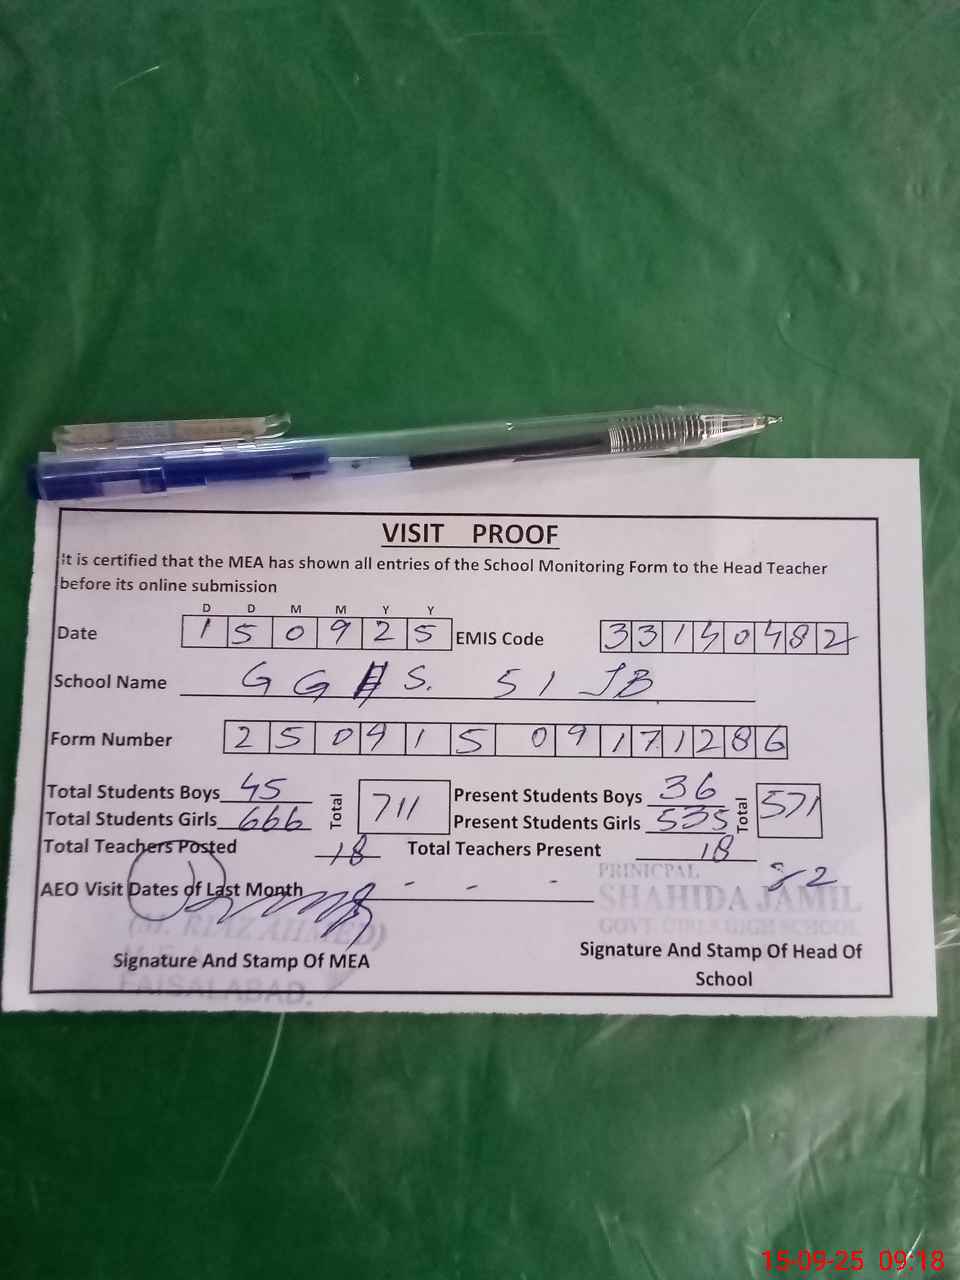 VISIT PROOF
It is certified that the MEA has shown all entries of the School Monitoring Form to the Head Teacher
before its online submission
D D M M Y Y
Date 1 5 0 9 2 5 EMIS Code 3 3 1 4 0 4 8 2
School Name G G H S. 51 JB
Form Number 2 5 0 9 1 5 0 9 1 7 1 2 8 6
Total Students Boys 45 Total 711 Present Students Boys 36 Total 571
Total Students Girls 666 Present Students Girls 535
Total Teachers Posted 18 Total Teachers Present 18
AEO Visit Dates of Last Month - - -
PRINICPAL
SHAHIDA JAMIL
GOVT. GIRLS HIGH SCHOOL
(M. RIAZ AHMED)
Signature And Stamp Of MEA
Signature And Stamp Of Head Of
School
FAISALABAD.
15-09-25 09:18